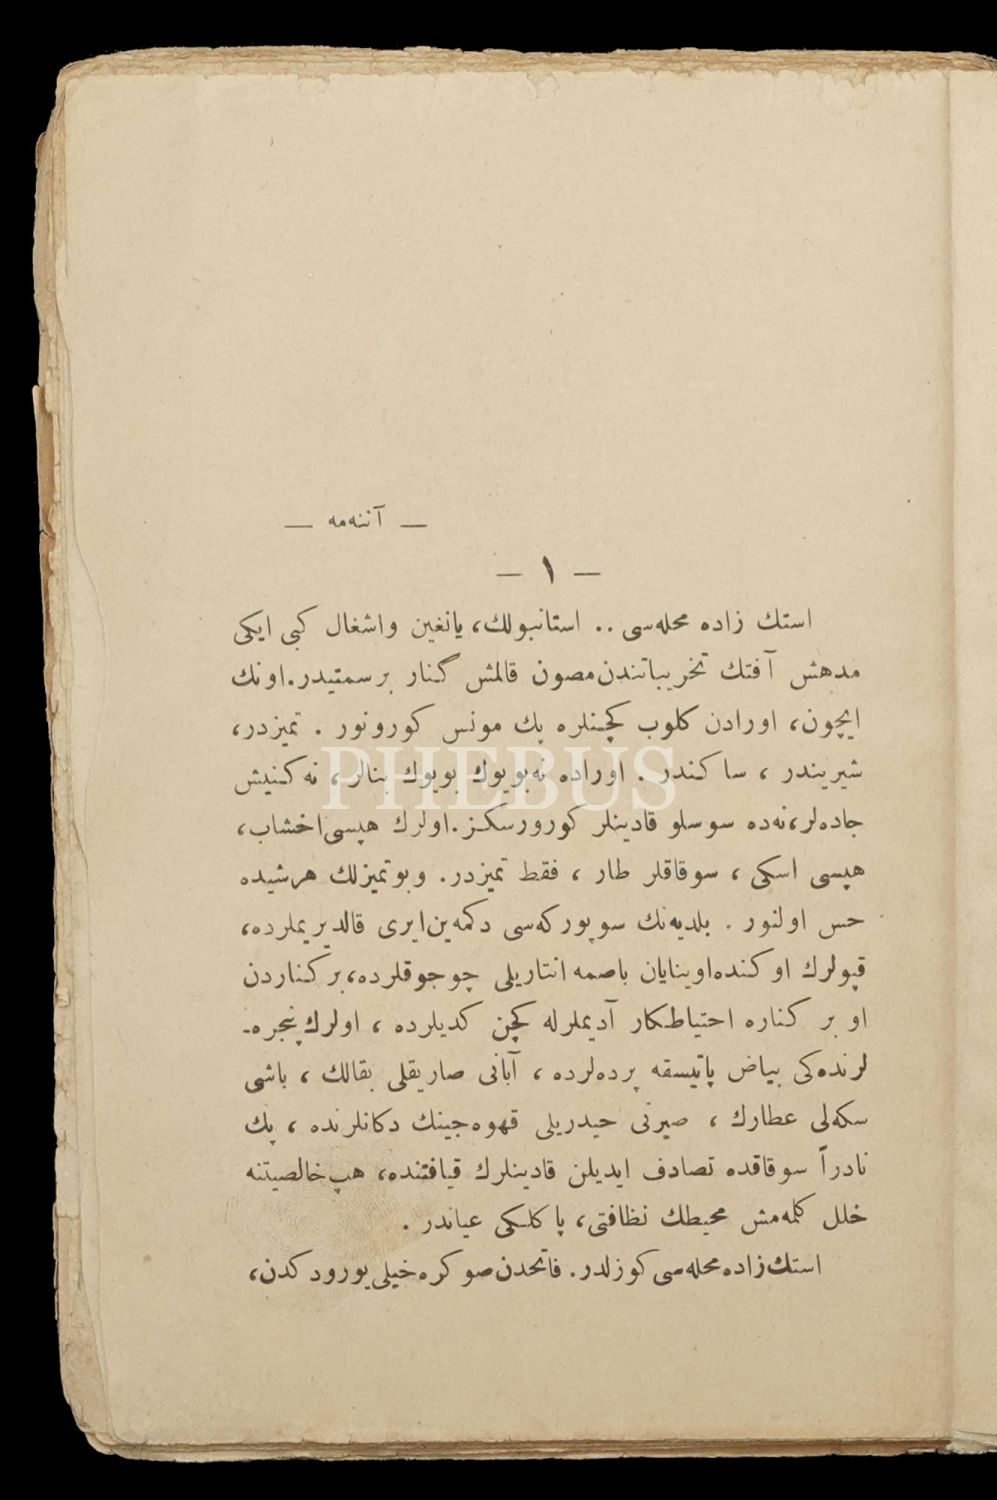 — آننه‌مه —
— ١ —
استك زاده محله‌سی .. استانبولك، یانغین واشغال كبی ایكی
مدهش آفتك تخریباتندن مصون قالمش گنار برسمتیدر. اونك
ایچون، اورادن كلوب كچنلره پك مونس كورونور . تمیزدر،
شیریندر ، ساكندر . اوراده نه بویوك بویوك بنالر، نه كنیش
جاده‌لر، نه‌ده سوسلو قادینلر كورورسكز. اولرك هپسی اخشاب،
هپسی اسكی ، سوقاقلر طار ، فقط تمیزدر. وبوتمیزلك هرشیده
حس اولنور . بلدیه‌نك سوپوركه‌سی دكمه‌ین ایری قالدیریملرده،
قپولرك اوكنده اوینایان باصمه انتاریلی چوجوقلرده، بركناردن
او بر كناره احتیاطكار آدیملرله كچن كدیلرده ، اولرك پنجره‌ـ
لرنده‌كی بیاض پاتیسقه پرده‌لرده ، آبانی صاریقلی بقالك ، باشی
سكه‌لی عطارك ، صیرتی حیدریلی قهوه‌جینك دكانلرنده ، پك
نادراً سوقاقده تصادف ایدیلن قادینلرك قیافتنده، هپ خالصیتنه
خلل كلمه‌مش محیطك نظافتی، پاكلكی عیاندر .
استك زاده محله‌سی كوزلدر. فاتحدن صوكره خیلی یورودكدن،
PHEBUS